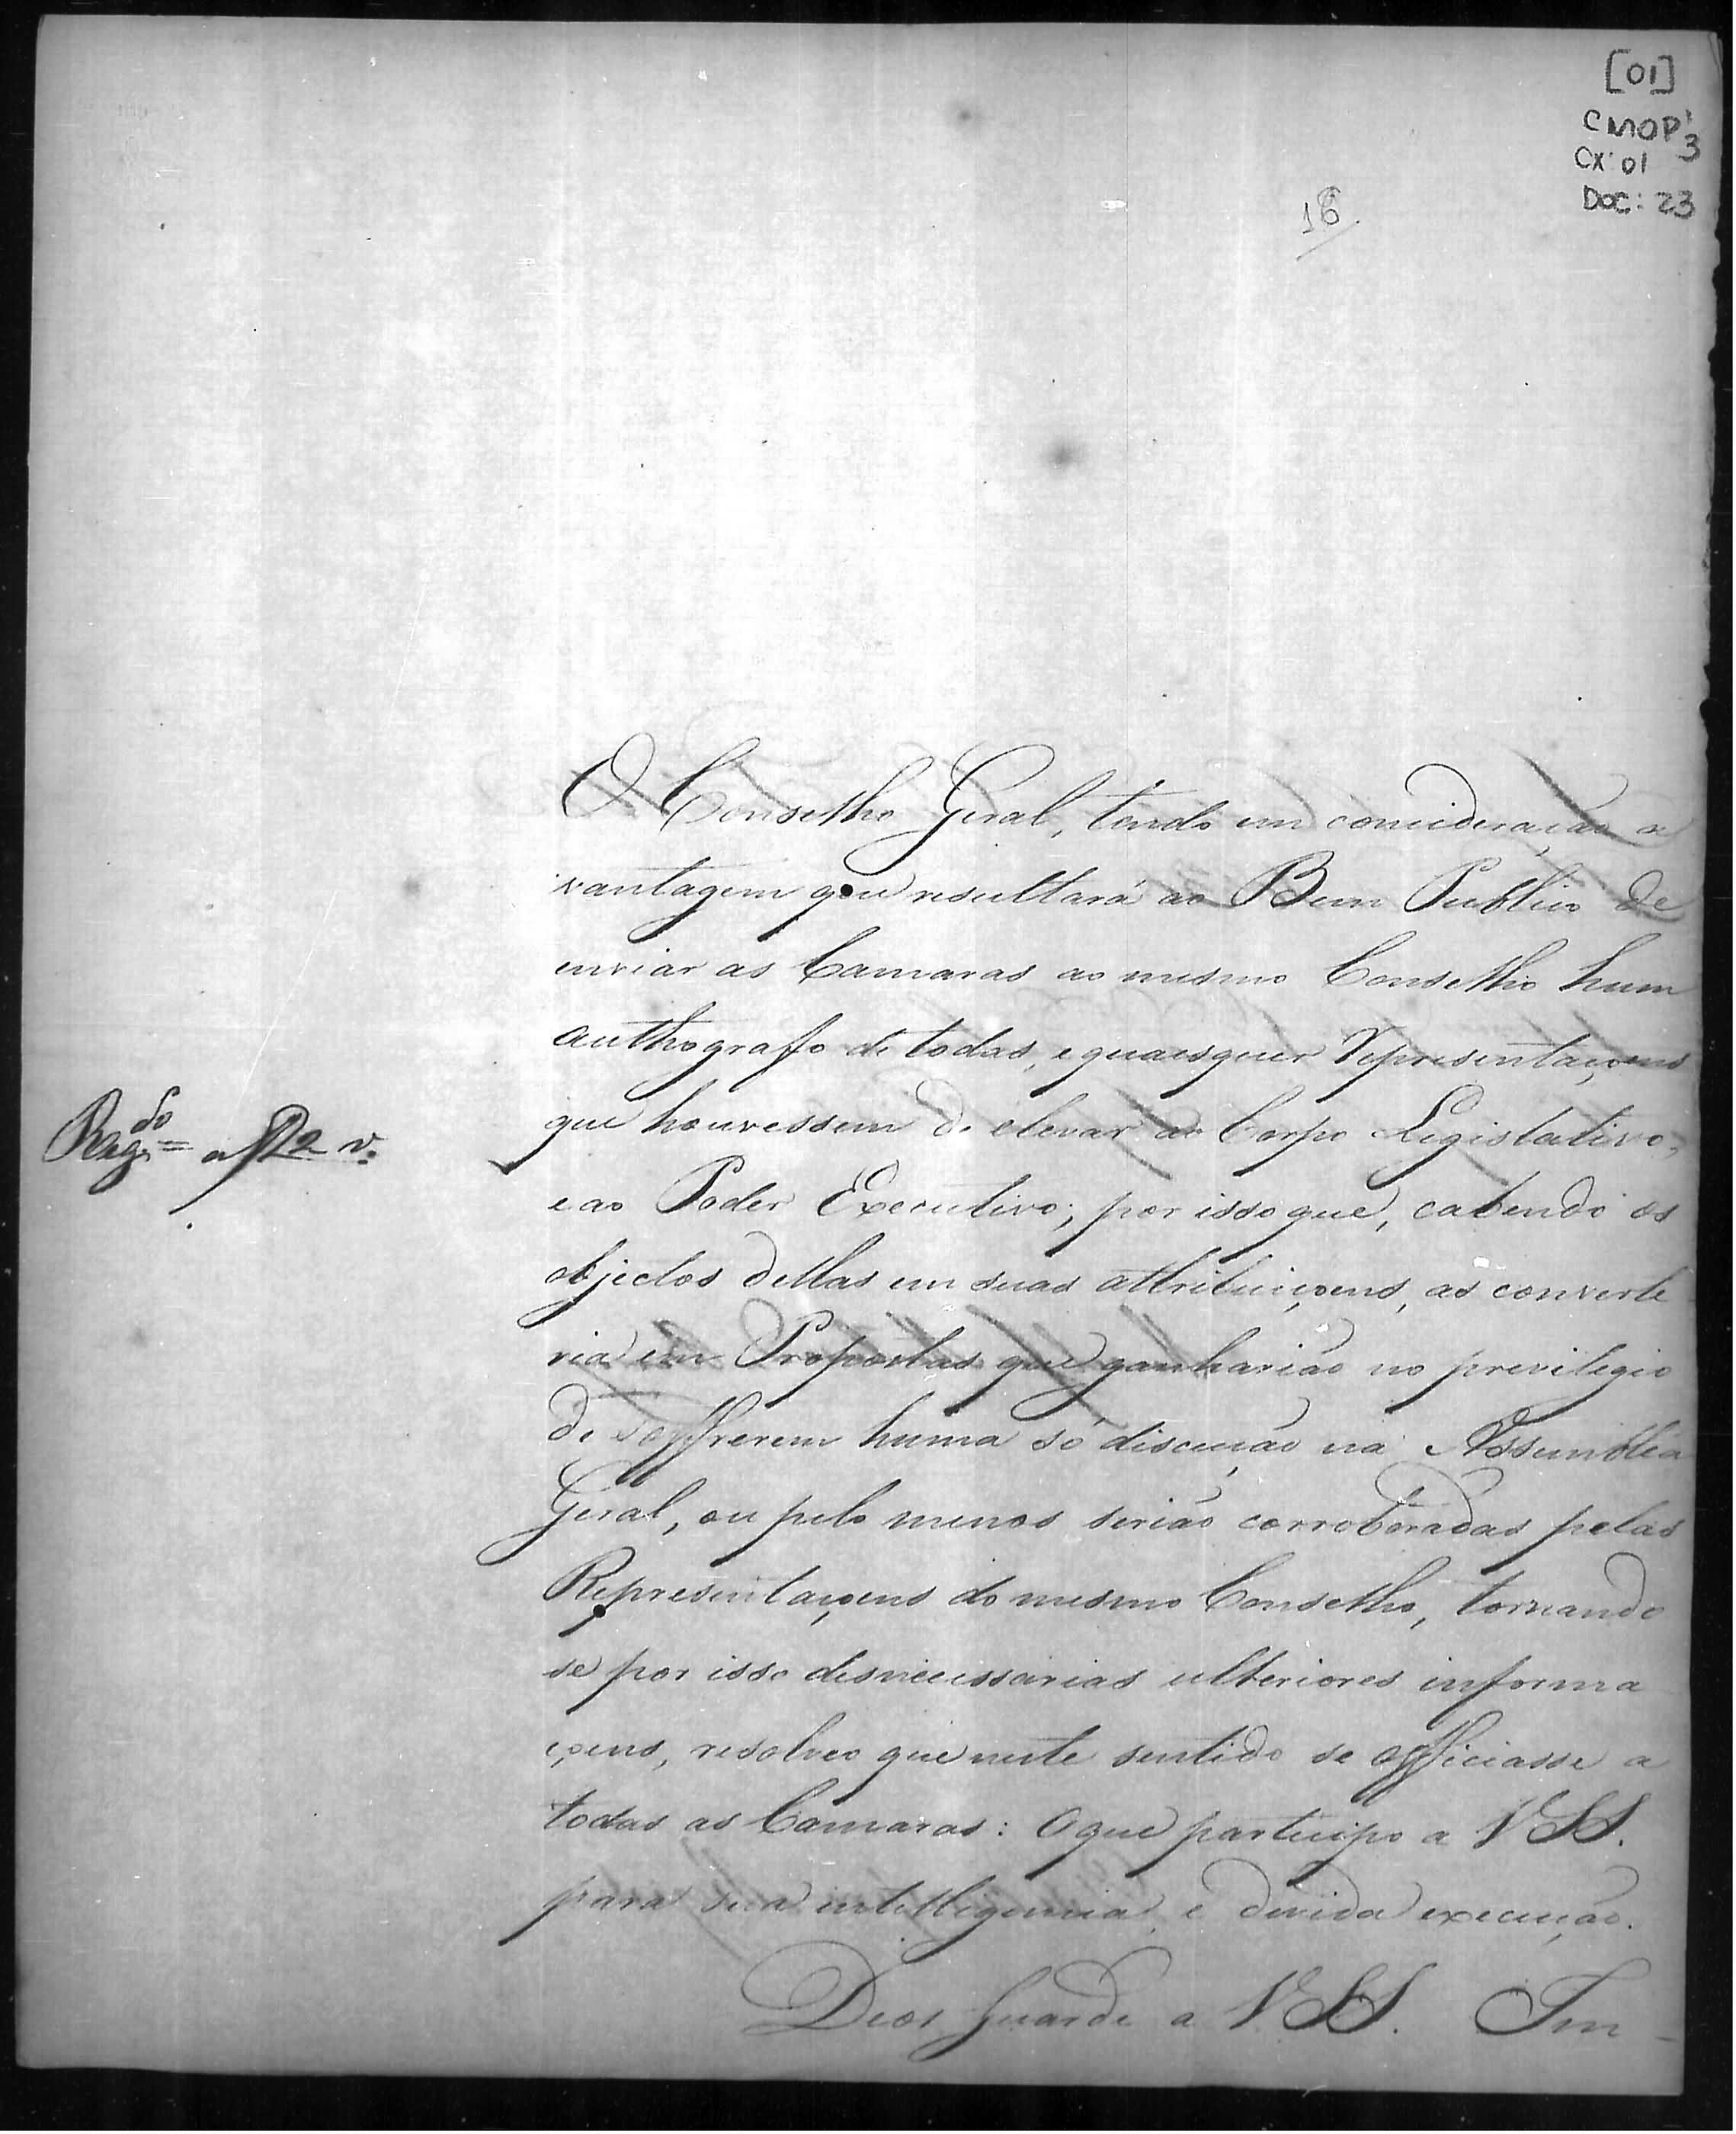 [01]
CMOP 3
CX: 01
DOC: 23
16
O Conselho Geral, tendo em concideração a
vantagem que resultará ao Bem Publico de
enviar as Camaras ao mesmo Conselho hum
authografo de todas, e quaesquer Representaçoens
que houvessem de elevar ao Corpo Legislativo,
e ao Poder Executivo; por isso que, cabendo os
objectos dellas em suas attribuiçoens, as converte
ria em Propostas que ganharião no previlegio
de soffrerem huma só discução na Assemblea
Geral, ou pelo menos serião corroboradas pelas
Representaçoens do mesmo Conselho, tornando
se por isso desnecessarias ulteriores informa
çoens, resolveo que neste sentido se officiasse a
todas as Camaras: O que participo a VSS.
para sua intelligencia, e devida execução.
Deos Guarde a VSS. Im-
Reg.do a f 22 v.